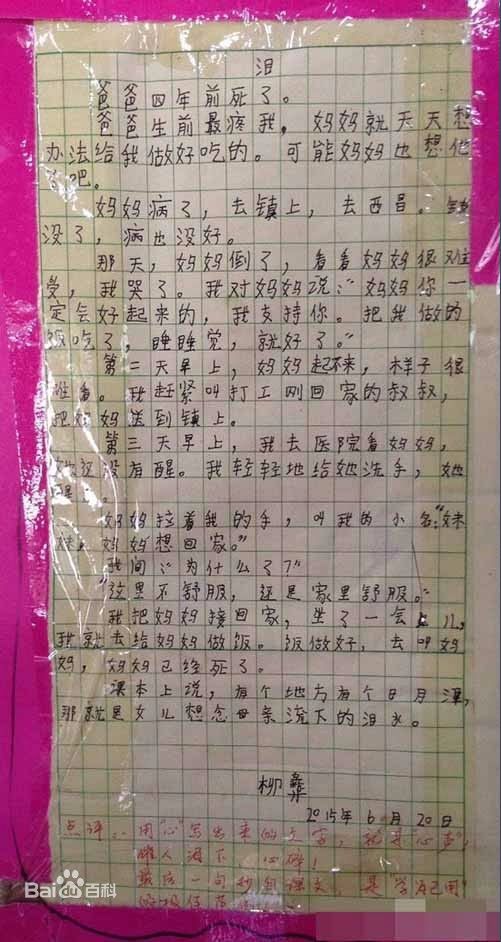 泪
爸爸四年前死了。
爸爸生前最疼我，妈妈就天天想
办法给我做好吃的。可能妈妈也想他
了吧。
妈妈病了，去镇上，去西昌。钱
没了，病也没好。
那天，妈妈倒了，看看妈妈很难
受，我哭了。我对妈妈说：“妈妈你一
定会好起来的，我支持你。把我做的
饭吃了，睡睡觉，就好了。”
第二天早上，妈妈起不来，样子很
难看。我赶紧叫打工刚回家的叔叔，
把妈妈送到镇上。
第三天早上，我去医院看妈妈，
她还没有醒。我轻轻地给她洗手，她
醒了。
妈妈拉着我的手，叫我的小名：“妹
妹，妈妈想回家。”
我问：“为什么了？”
“这里不舒服，还是家里舒服。”
我把妈妈接回家，坐了一会儿，
我就去给妈妈做饭。饭做好，去叫妈
妈，妈妈已经死了。
课本上说，有个地方有个日月潭，
那就是女儿想念母亲流下的泪水。
柳彝
2015年6月20日
点评：用“心”写出来的文字，就是“心声”，
催人泪下、心碎！
最后一句抄自课文，是“学为己用”
Bai百科